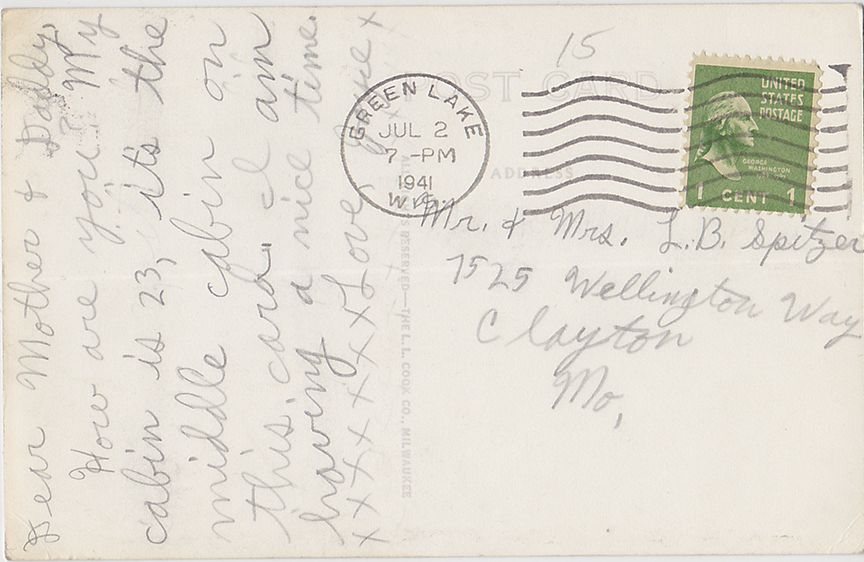 15
POST CARD
GREEN LAKE
JUL 2
7-PM
1941
WIS.
UNITED
STATES
POSTAGE
GEORGE
WASHINGTON
1 CENT 1
ADDRESS
Mr. & Mrs. L.B. Spitzer
7525 Wellington Way
Clayton
Mo,
Dear Mother & Daddy,
How are you? My
cabin is 23, it's the
middle cabin on
this card. I am
having a nice time.
Love,
x x x x x x x
RESERVED—THE L. L. COOK CO., MILWAUKEE